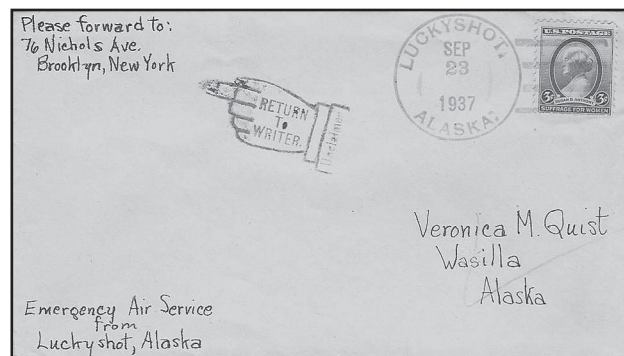 Please forward to:
76 Nichols Ave.
Brooklyn, New York
RETURN
TO
WRITER
Unclaimed
LUCKYSHOT,
SEP
23
1937
ALASKA.
U.S. POSTAGE
3¢ 3¢
SUSAN B. ANTHONY
SUFFRAGE FOR WOMEN
Veronica M. Quist
Wasilla
Alaska
Emergency Air Service
from
Luckyshot, Alaska